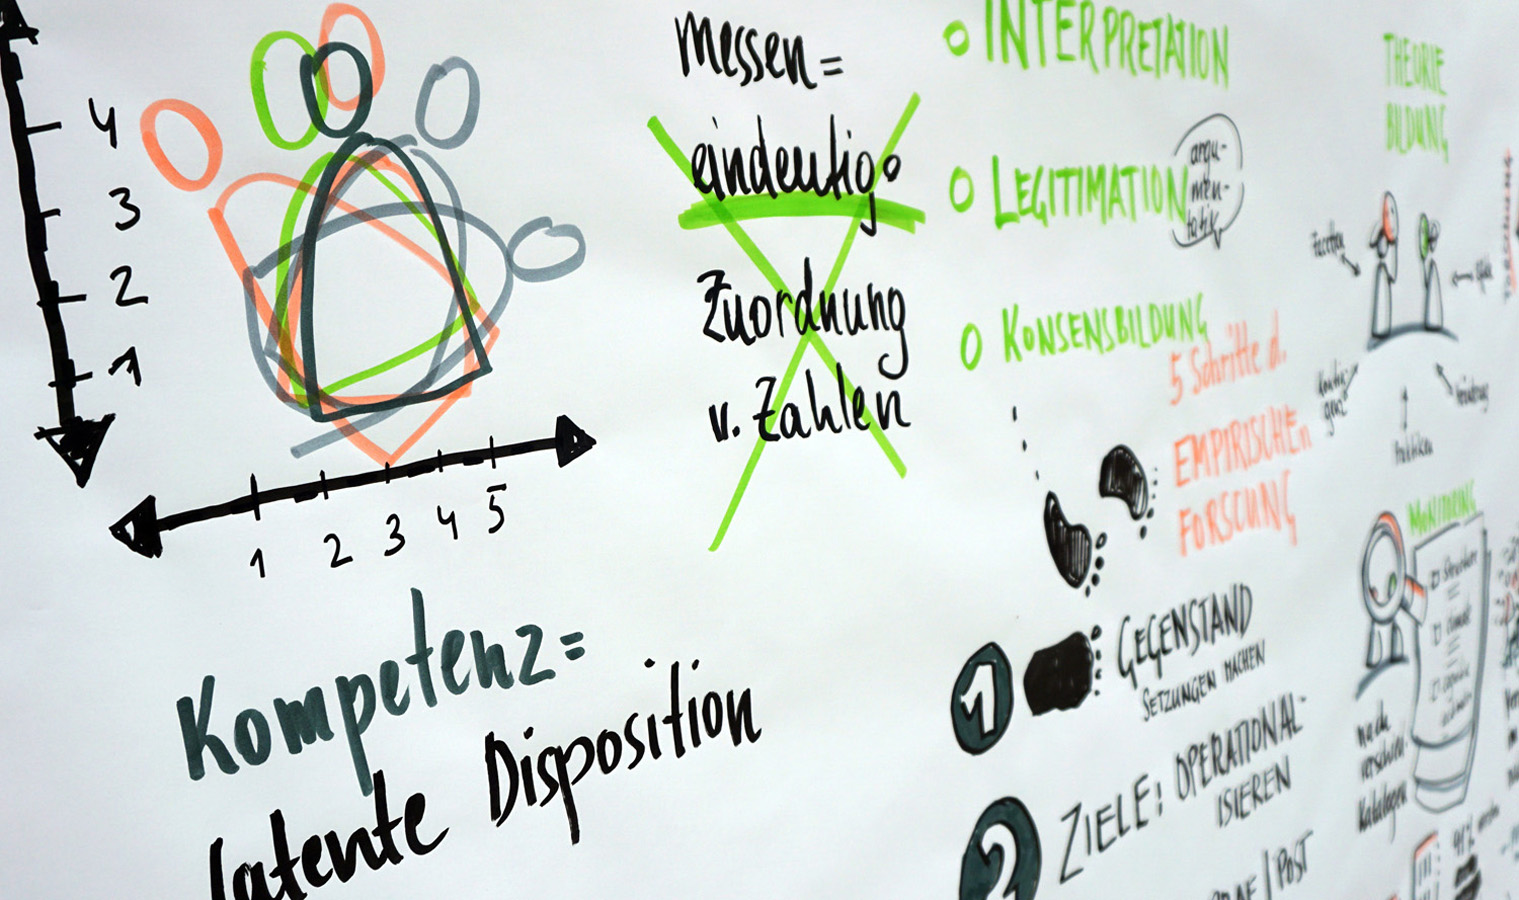 4
3
2
1
1 2 3 4 5
Kompetenz=
latente Disposition
messen=
eindeutige
Zuordnung
v. Zahlen
INTERPRETATION
LEGITIMATION
argu-
men-
tativ
KONSENSBILDUNG
5 Schritte d.
EMPIRISCHEn
FORSCUNG
1 GEGENSTAND
SETZUNGEN MACHEN
2 ZIELE: OPERATIONAL-
ISIEREN
POST
THEORIE
BILDUNG
Facetten
MONITORING
nach
verschied.
Katalogen